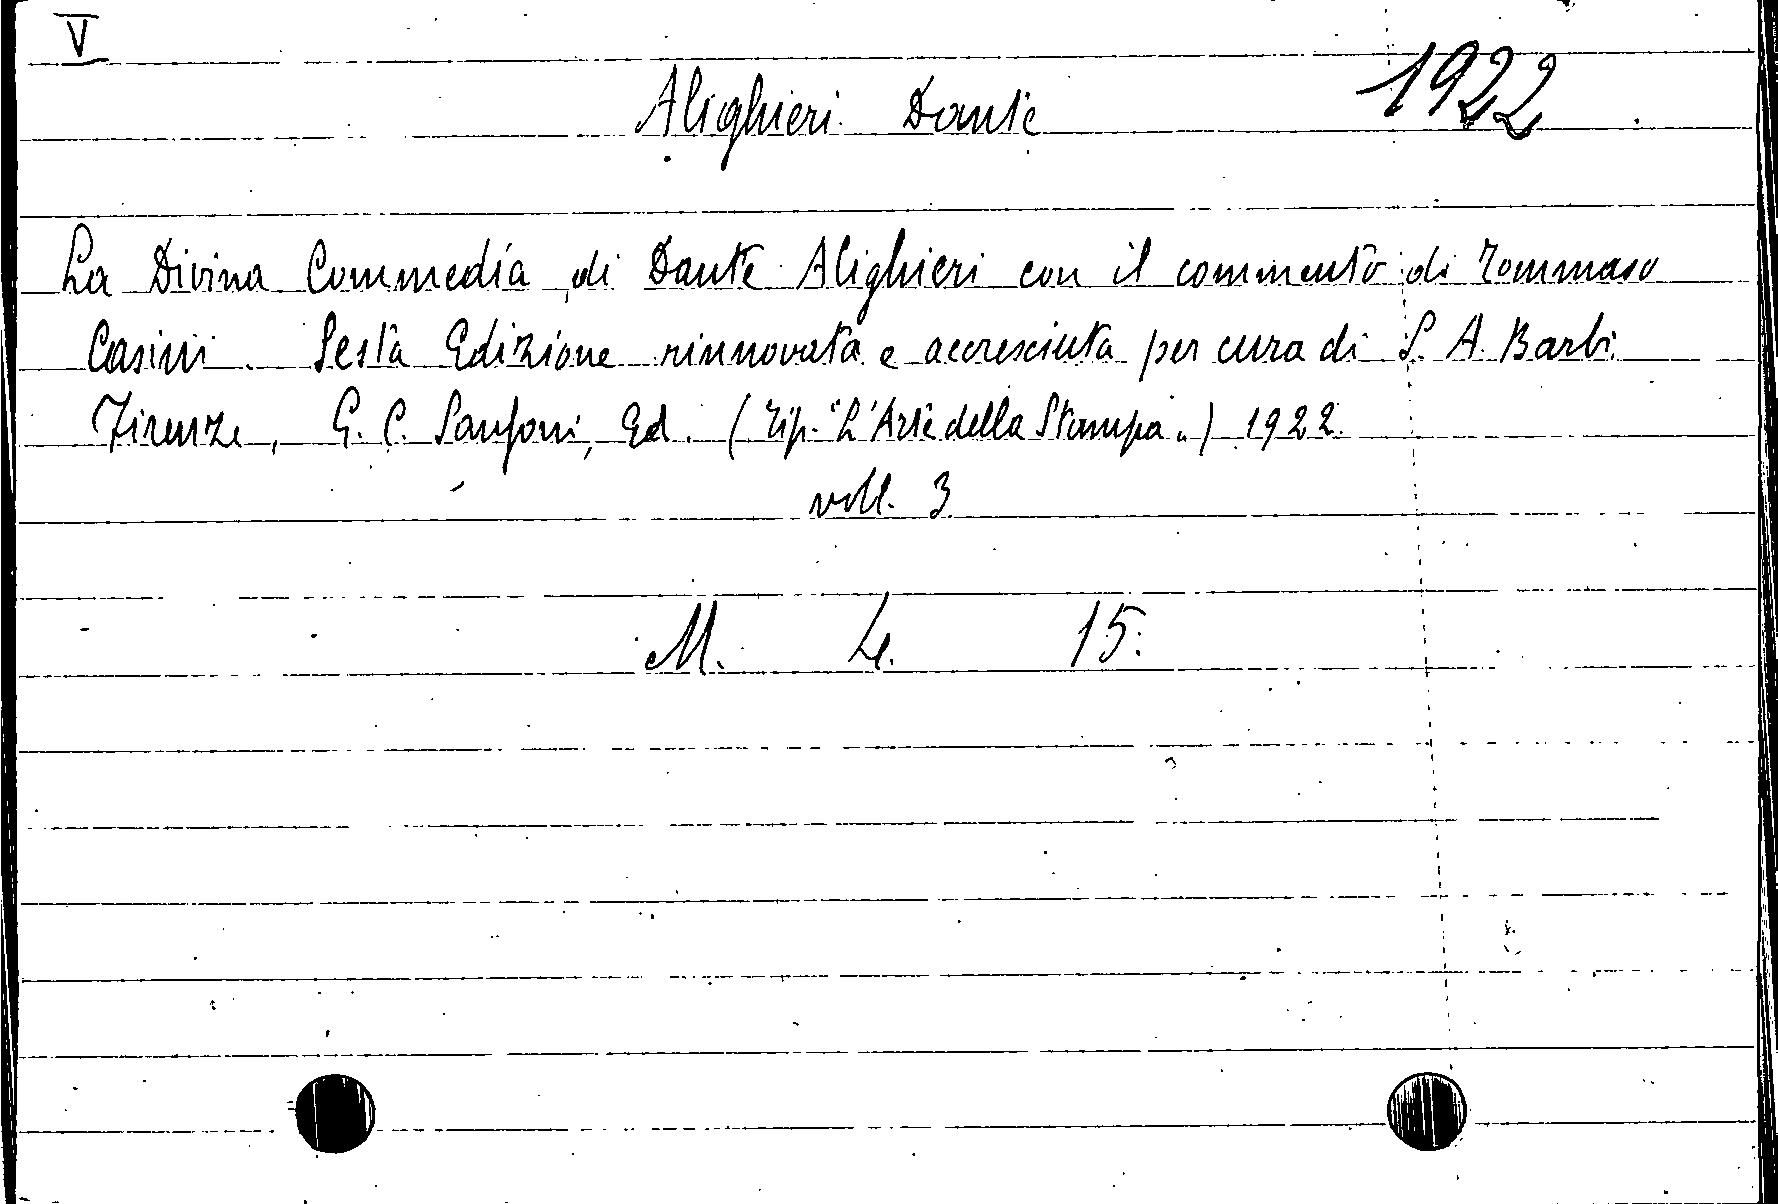 V
Alighieri Dante 1922
La Divina Commedia di Dante Alighieri con il commento di Tommaso
Casini. Sesta Edizione rinnovata e accresciuta per cura di S. A. Barbi.
Firenze, G. C. Sansoni, Ed. (Tip. "L'Arte della Stampa„) 1922.
voll. 3
M. 4. 15.